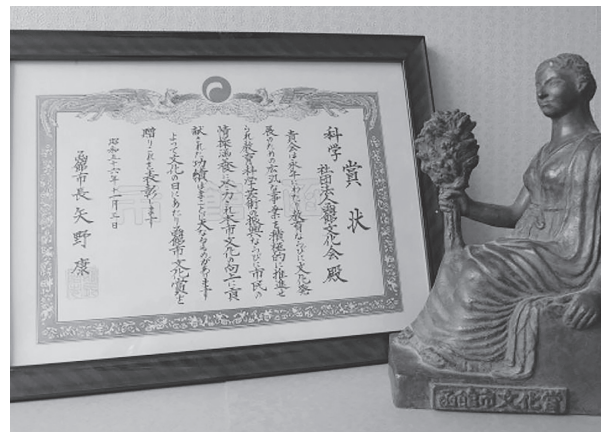 賞状
科学
社団法人函館文化会殿
貴会は永年にわたり教育ならびに文化発
展のための広汎な事業を積極的に推進せ
られ教育科学芸術の振興ならびに市民の
情操涵養に努力され本市文化の向上に貢
献された功績はまことに大なるものがあります
よつて文化の日にあたり函館市文化賞を
贈りこれを表彰します
昭和五十六年十一月三日
函館市長矢野康
函館市文化賞